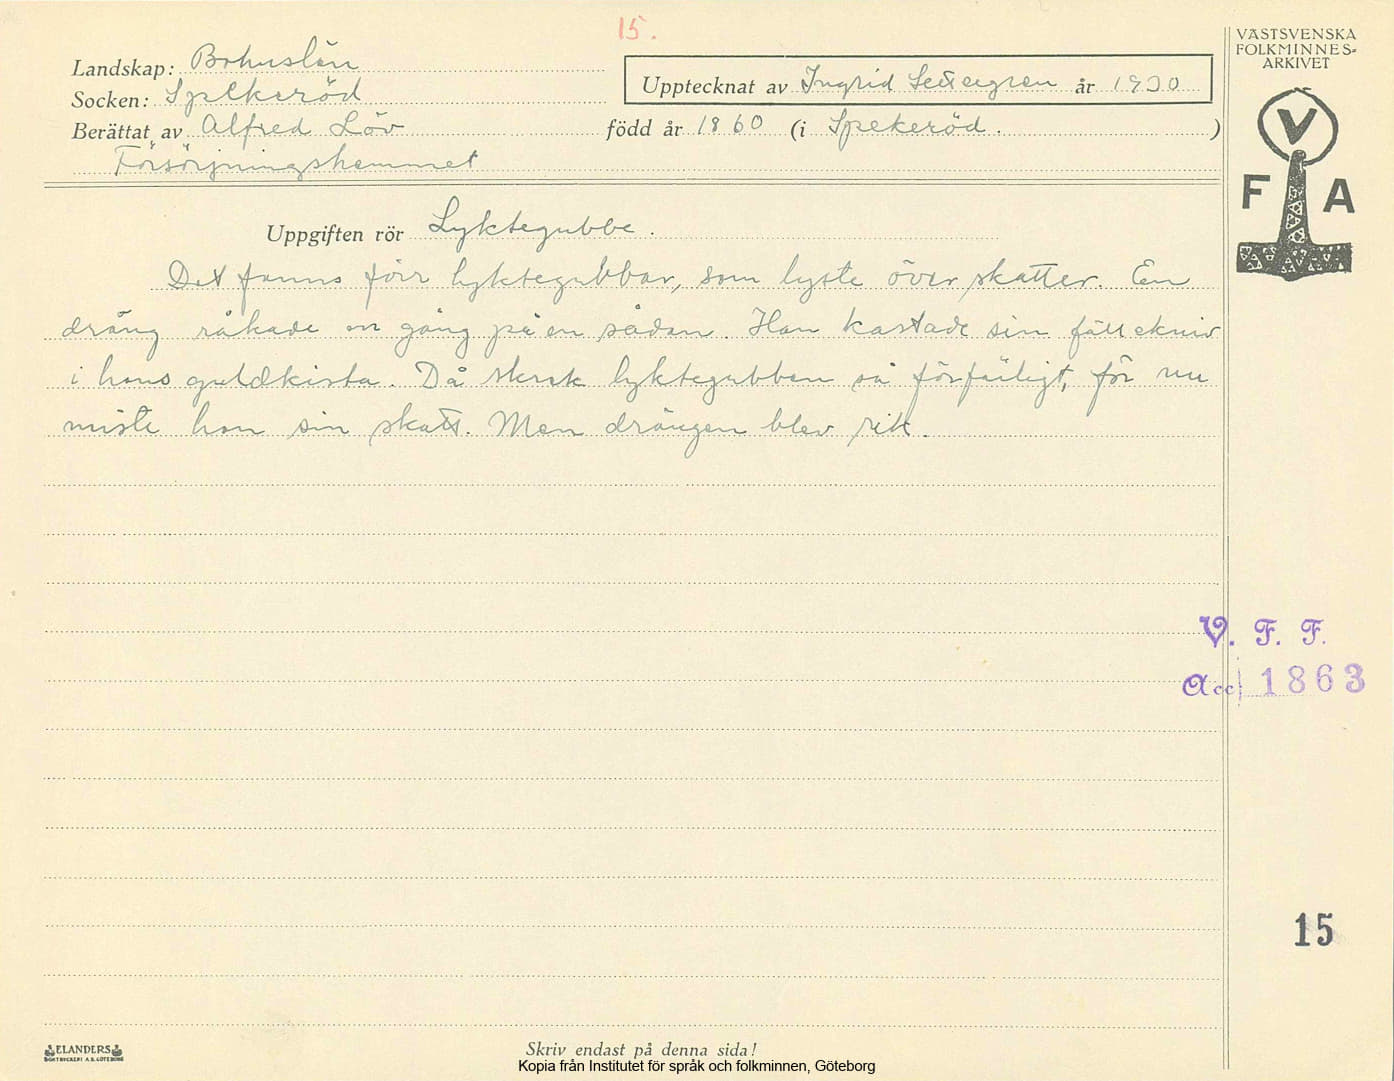 15.
VÄSTSVENSKA
FOLKMINNES-
ARKIVET
V
F A
Landskap: Bohuslän
Upptecknat av Ingrid år 1930
Socken: Spekeröd
Berättat av Alfred Löv född år 1860 (i Spekeröd. )
Försörjningshemmet
Uppgiften rör Lyktegubbe.
Det fanns förr lyktegubbar, som lyste över skatter. En
dräng råkade en gång på en sådan. Han kastade sin fällekniv
i hans guldkista. Då skrek lyktegubben så förfärligt, för nu
miste han sin skatt. Men drängen blev rik.
V. F. F.
Acc 1863
15
ELANDERS
BOKTRYCKERI A.B. GÖTEBORG
Skriv endast på denna sida!
Kopia från Institutet för språk och folkminnen, Göteborg